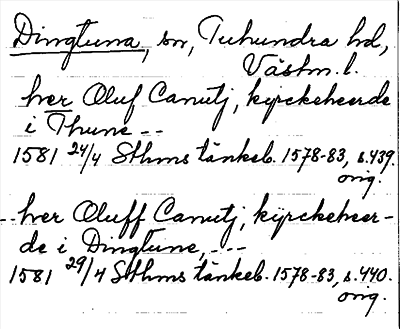 Dingtuna, sn, Tuhundra hd,
Västm. l.
her Oluf Canutj, kyrckeheerde
i Thune --
1581 24/4 Sthms tänkeb. 1578-83, s. 439.
orig.
-- her Oluff Canutj, kyrckeheer-
de i Dingtune, ---
1581 29/4 Sthms tänkeb. 1578-83, s. 440.
orig.